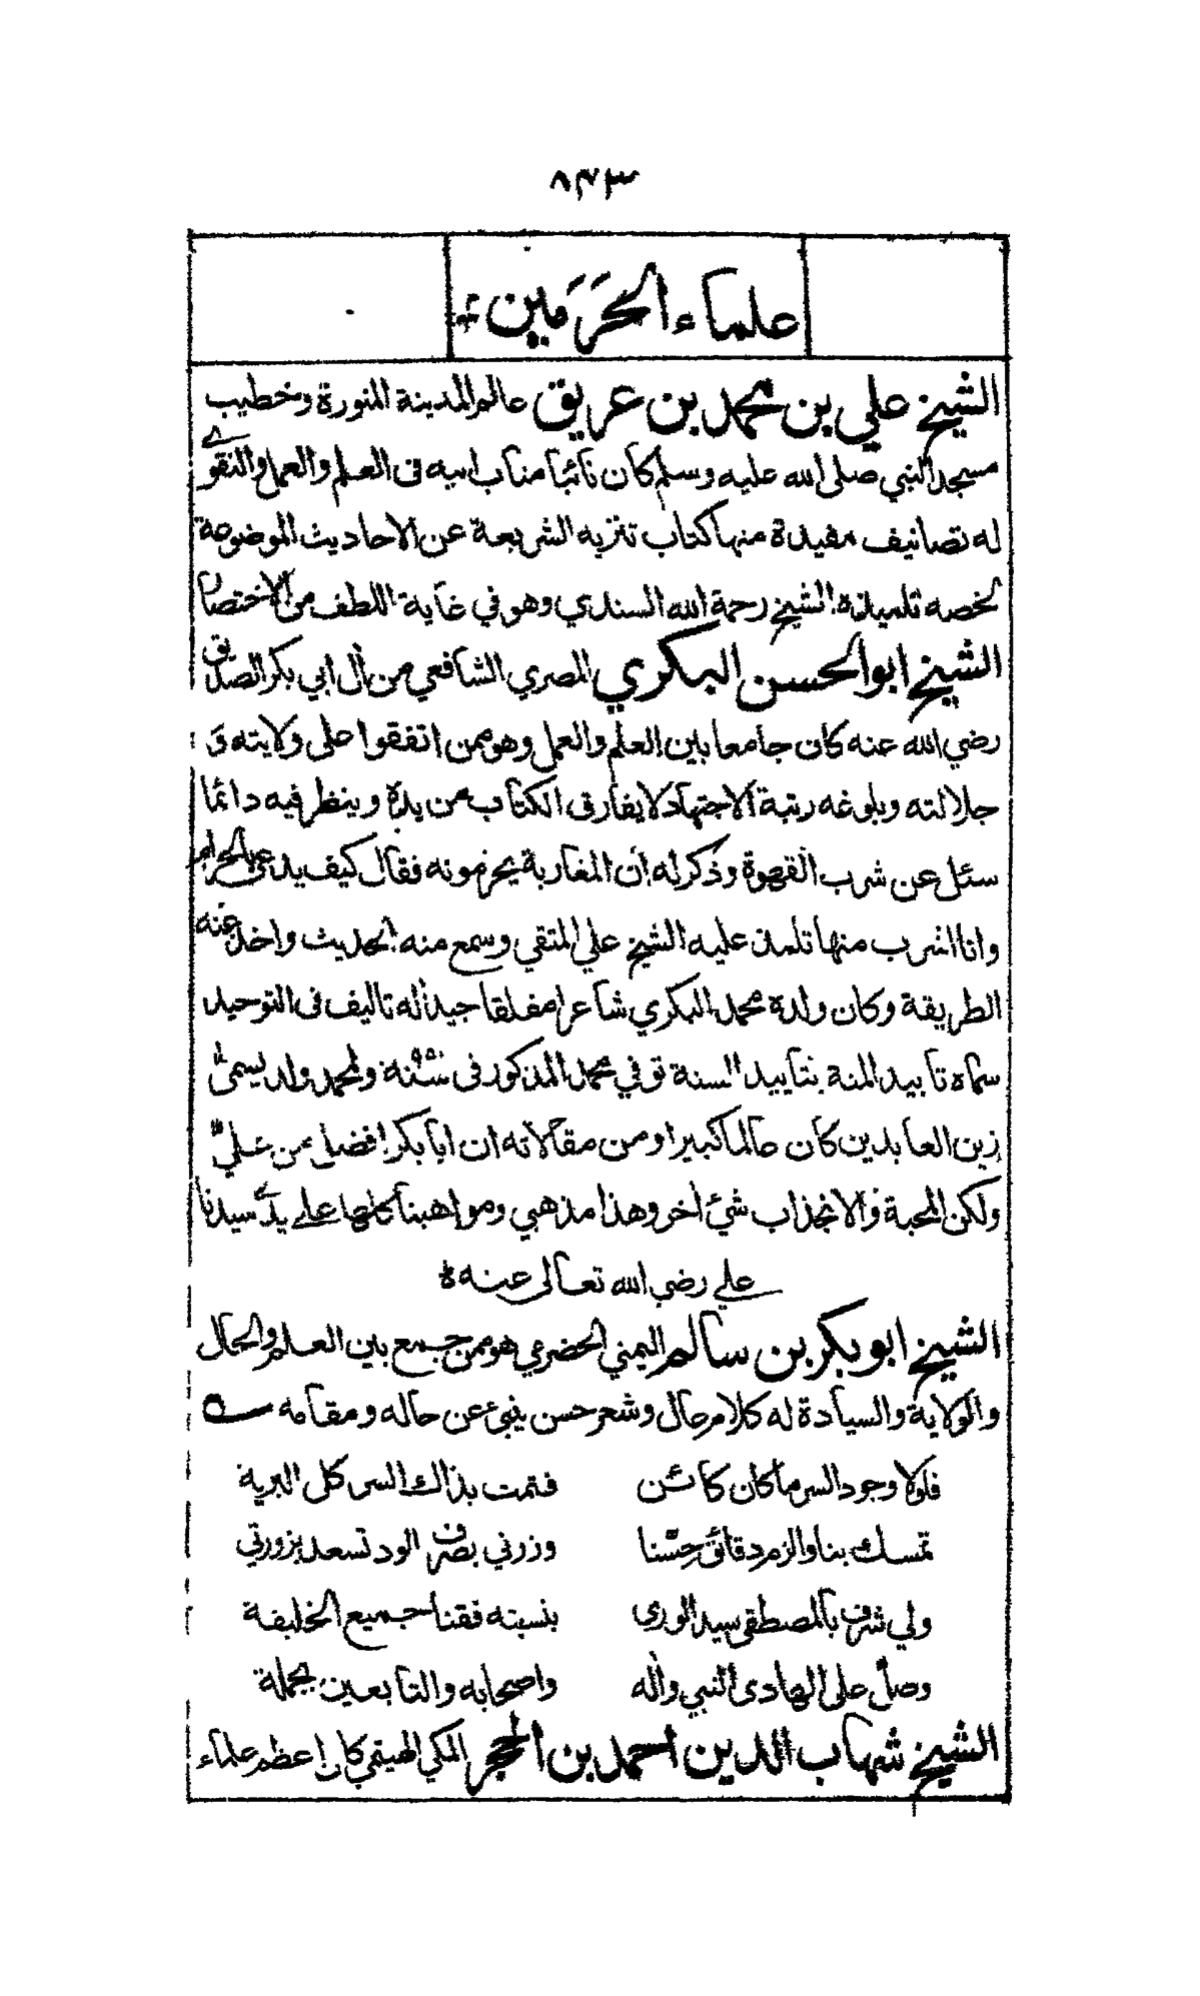 ٨٤٣
علماء الحَرَمَين
الشيخ علي بن محمد بن عريق عالم المدينة المنورة وخطيب
مسجد النبي صلى الله عليه وسلم كان نائبا مناب ابيه فى العلم والعمل والتقوى
له تصانيف مفيدة منها كتاب تنزيه الشريعة عن الاحاديث الموضوعة
لخصه تلميذه الشيخ رحمة الله السندي وهو في غاية اللطف من الاختصار
الشيخ ابو الحسن البكري المصري الشافعي من آل ابي بكر الصديق
رضي الله عنه كان جامعا بين العلم والعمل وهو ممن اتفقوا على ولايته و
جلالته وبلوغه رتبة الاجتهاد لا يفارق الكتاب من يده وينظر فيه دائما
سئل عن شرب القهوة وذكر له أن المغاربة يحرمونه فقال كيف يدعى بالحرام
وانا اشرب منها تلمذ عليه الشيخ علي المتقي وسمع منه الحديث واخذ عنه
الطريقة وكان ولده محمد البكري شاعرا مفلقا جيدا له تاليف فى التوحيد
سماه تأييد المنة بتأييد السنة توفي محمد المذكور فى سنة ولمحمد ولد يسمىٰ
زين العابدين كان عالما كبيرا ومن مقالاته ان ابا بكر افضل من علي
ولكن المحبة والانجذاب شئ أخر وهذا مذهبي ومواهبنا كلها على يد سيدنا
علي رضي الله تعالى عنه
الشيخ ابو بكر بن سالم اليمني الحضرمي هو ممن جمع بين العلم والحال
والولاية والسيادة له كلام حال وشعر حسن ينبئ عن حاله ومقامه
فلولا وجود السر ما كان كائن فتمت بذاك السر كل البرية
تمسك بنا والزم دقائق حسننا وزرني بصرف الود تسعد بزورتي
ولي شرف بالمصطفى سيد الورى بنسبته فقنا جميع الخليفة
وصل على الهادى النبي وآله واصحابه والتابعين بجملة
الشيخ شهاب الدين احمد بن الحجر المكي الهيتمي كان اعظم علماء